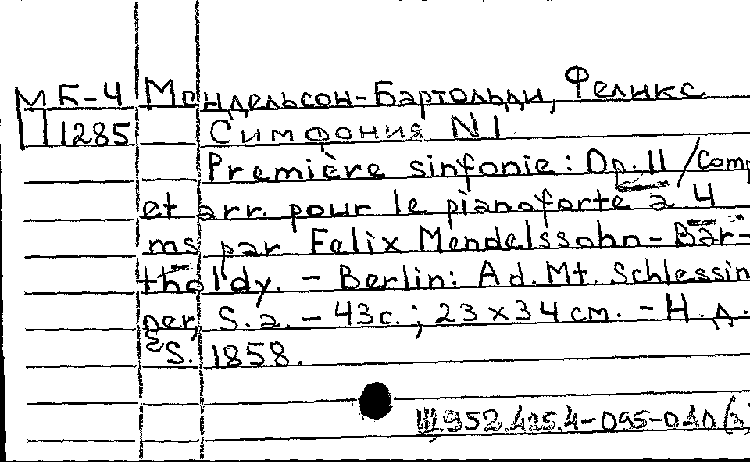 МБ-4 Мендельсон-Бартольди, Феликс
П1285 Симфония N1
Première sinfonie: Op.11/Comp
et arr. pour le pianoforte à 4
ms par Felix Mendelssohn-Bar-
tholdy. - Berlin: Ad. Mt. Schlessin
per, S. a. - 43с.; 23 x 34 см. - Н. д.
S. 1858.